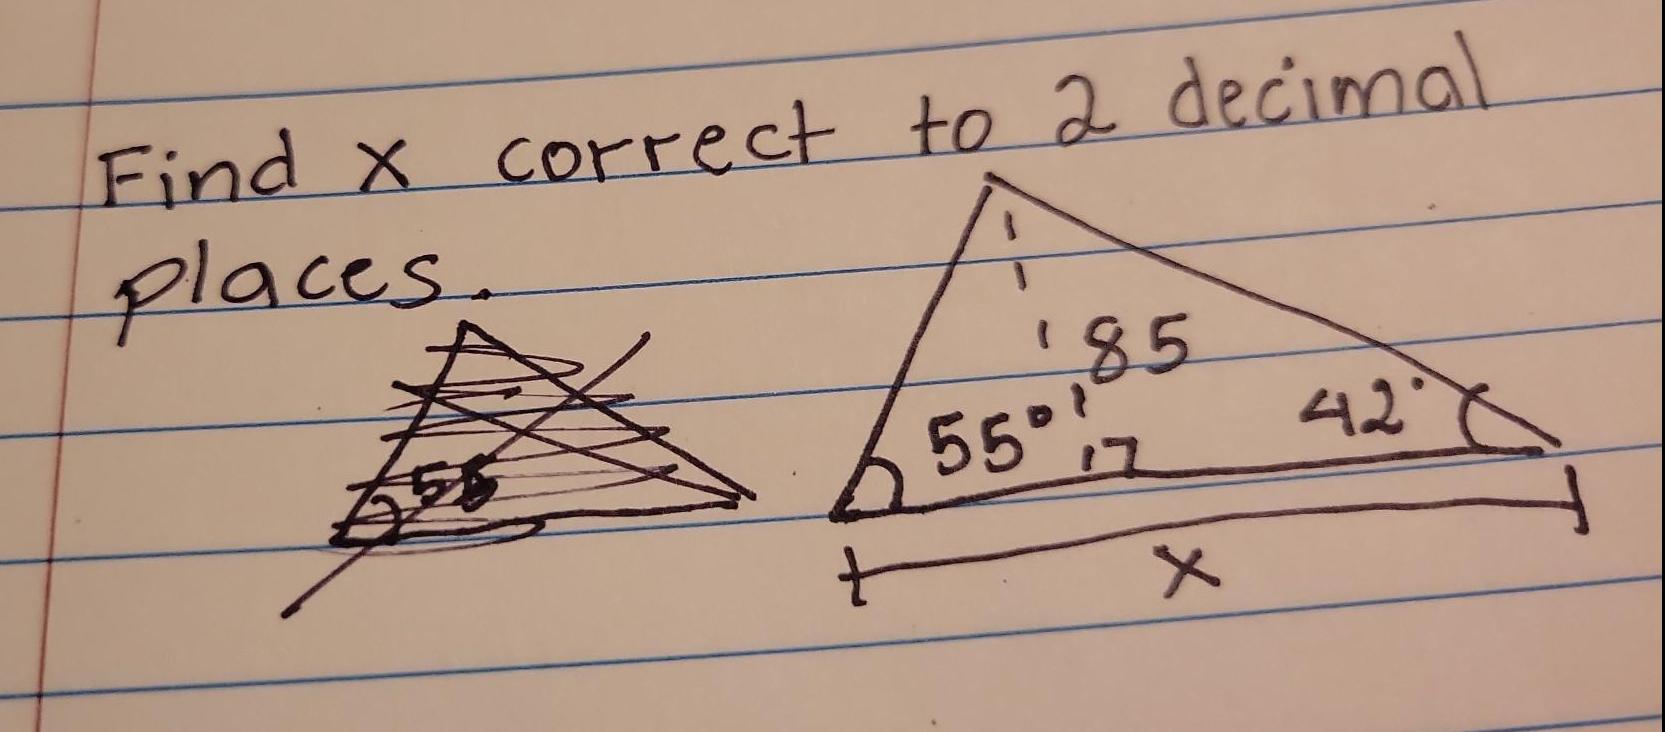 Find x correct to 2 decimal
places.
55
85
55° 42°
x